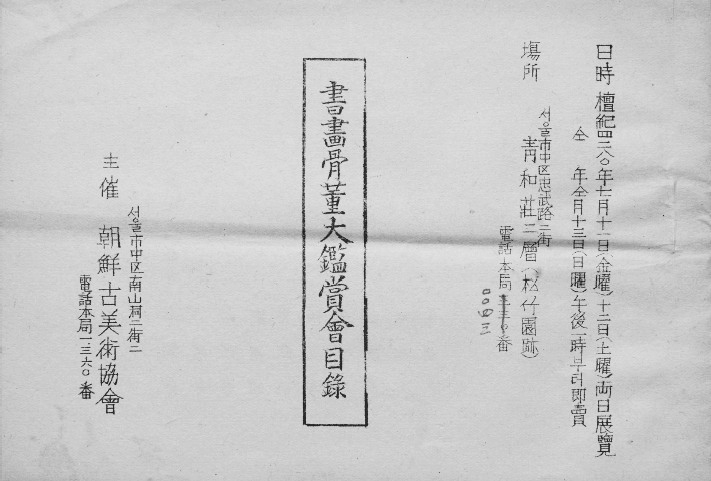 日時 檀紀四二八〇年七月十一日(金曜)十二日(土曜)両日展覽
仝 年仝月十三日(日曜)午後一時부터即賣
場所
서울市中区忠武路二街
青和莊二層(松竹園跡)
電話本局 番
書畵骨董大鑑賞會目錄
서울市中区南山洞二街二
主催 朝鮮古美術協會
電話本局一三六〇番